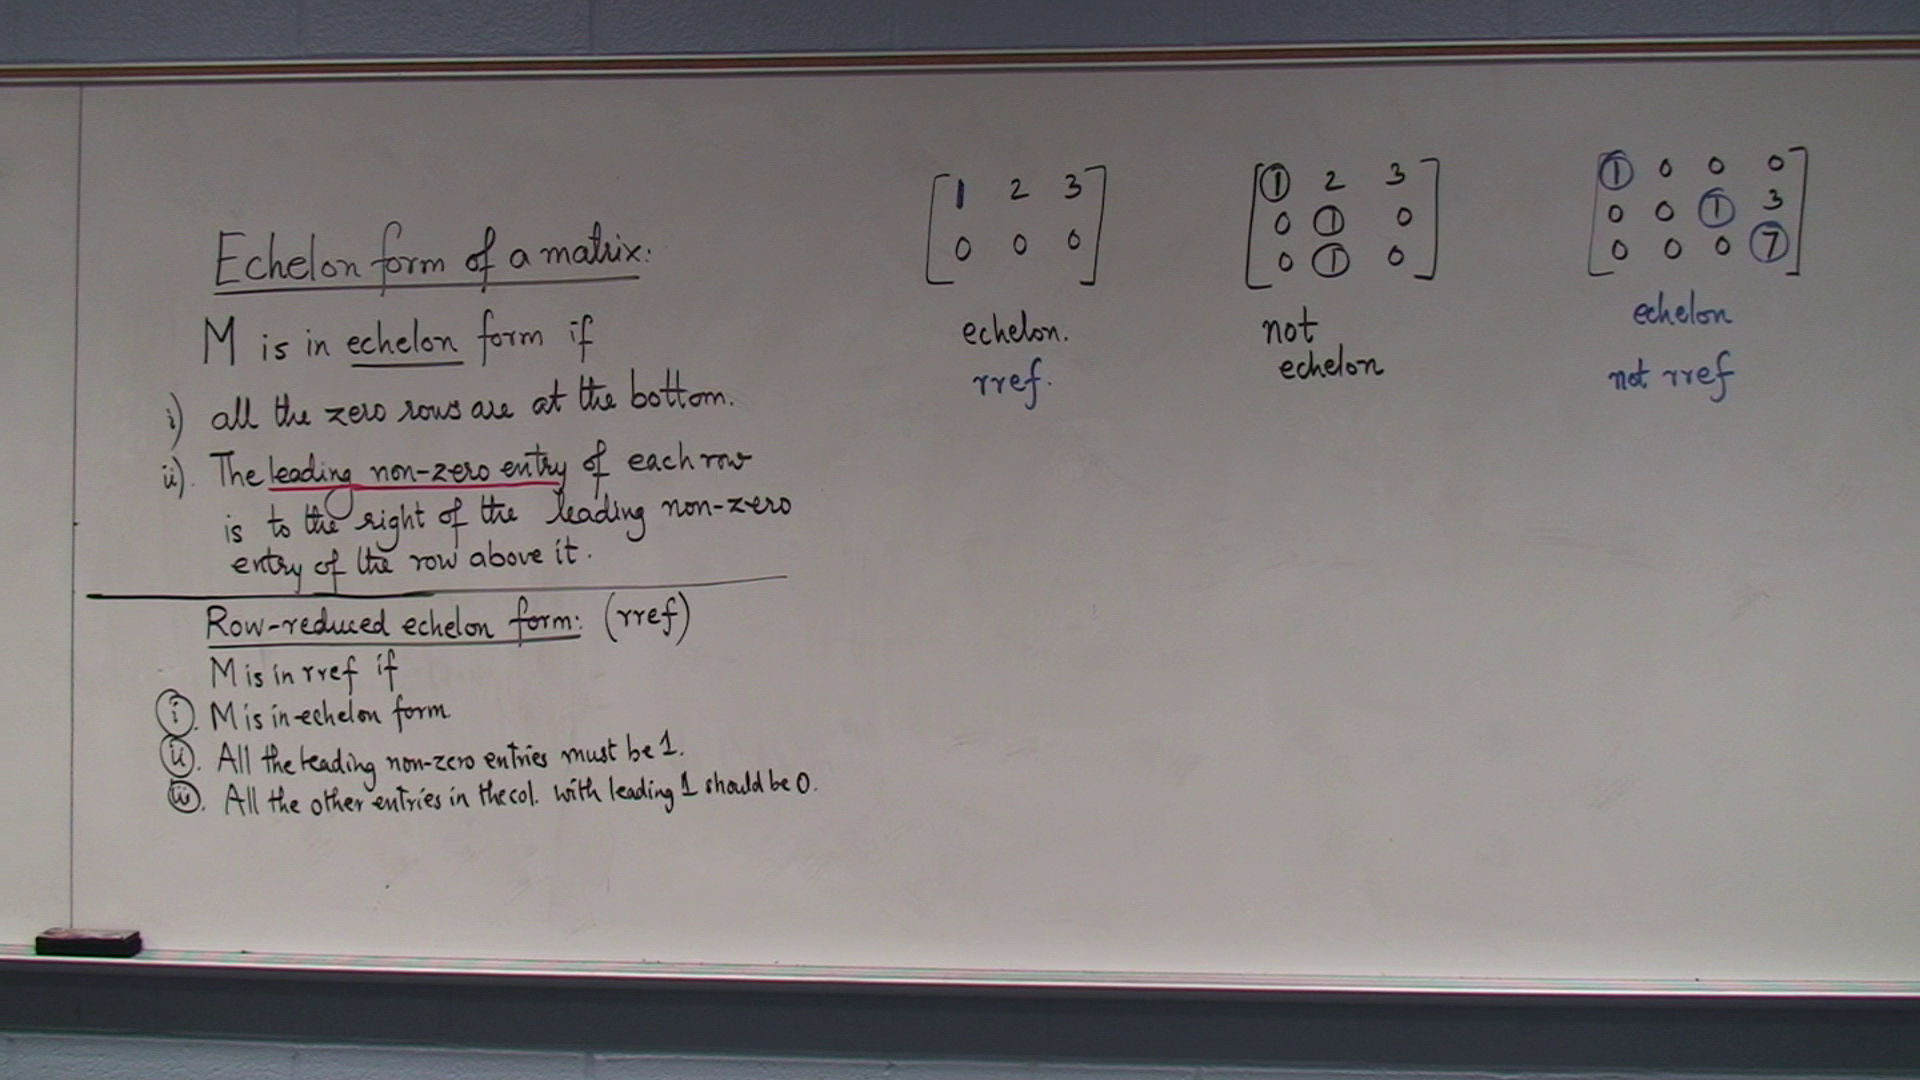 Echelon form of a matrix:
M is in echelon form if
i) all the zero rows are at the bottom.
ii). The leading non-zero entry of each row
is to the right of the leading non-zero
entry of the row above it.
Row-reduced echelon form: (rref)
M is in rref if
i. M is in echelon form
ii. All the leading non-zero entries must be 1.
iii. All the other entries in the col. with leading 1 should be 0.
1 2 3
0 0 0
echelon.
rref.
1 2 3
0 1 0
0 1 0
not
echelon
1 0 0 0
0 0 1 3
0 0 0 7
echelon
not rref